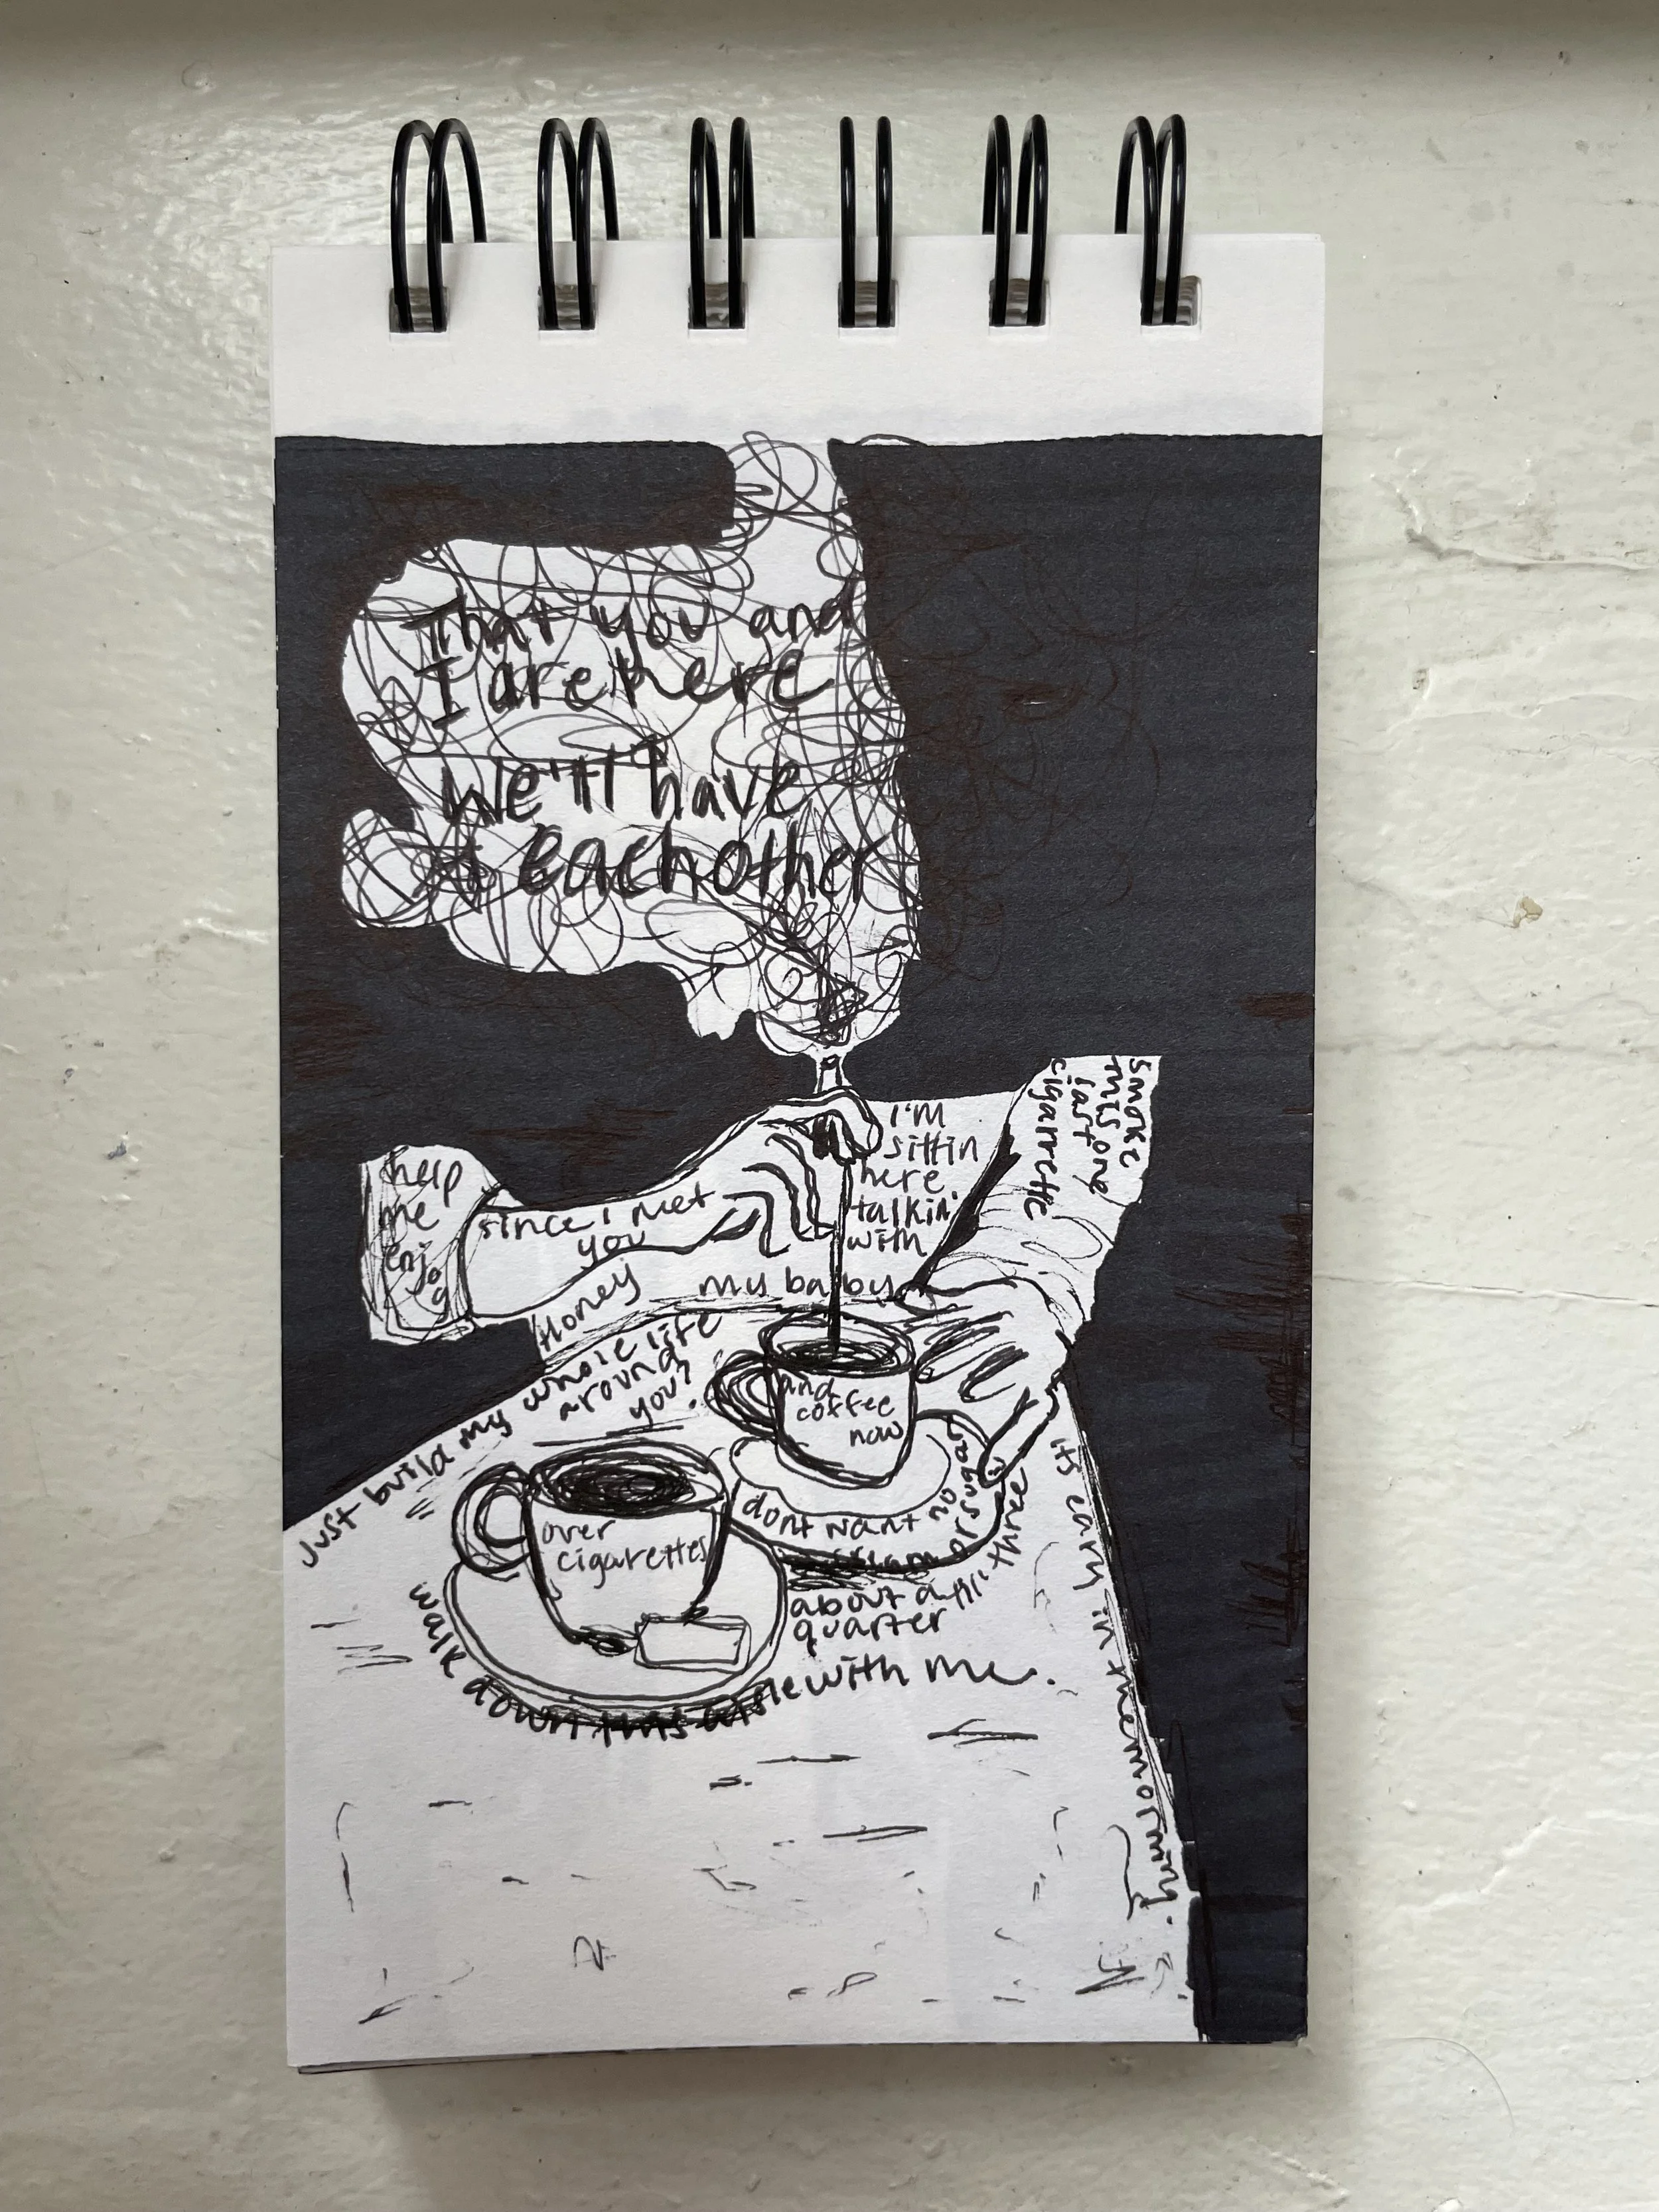 That you and
I are here
We'll have
Each other
I'm
sittin
here
talkin'
with
my baby
smoke
this one
last
cigarrette
help
me
enjoy
since i met
you
Honey
Just build my whole life
around
you?
and
coffee
now
over
cigarettes
dont want no
about a
quarter
three
its early in the morning.
walk down this aisle with me.